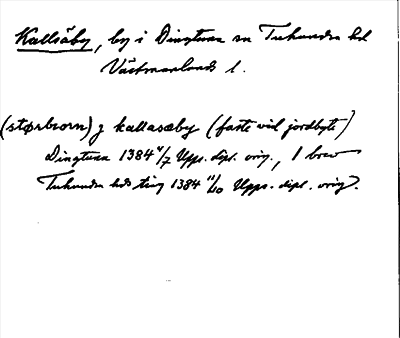 Kallsäby, by i Dingtuna sn Tuhundra hd
Västmanlands l.
(størbiorn) j kallasæby (faste vid jordbyte)
Dingtuna 1384 4/7 Upps. dipl. orig., 1 brev
Tuhundra hds ting 1384 11/10 Upps. dipl. orig.